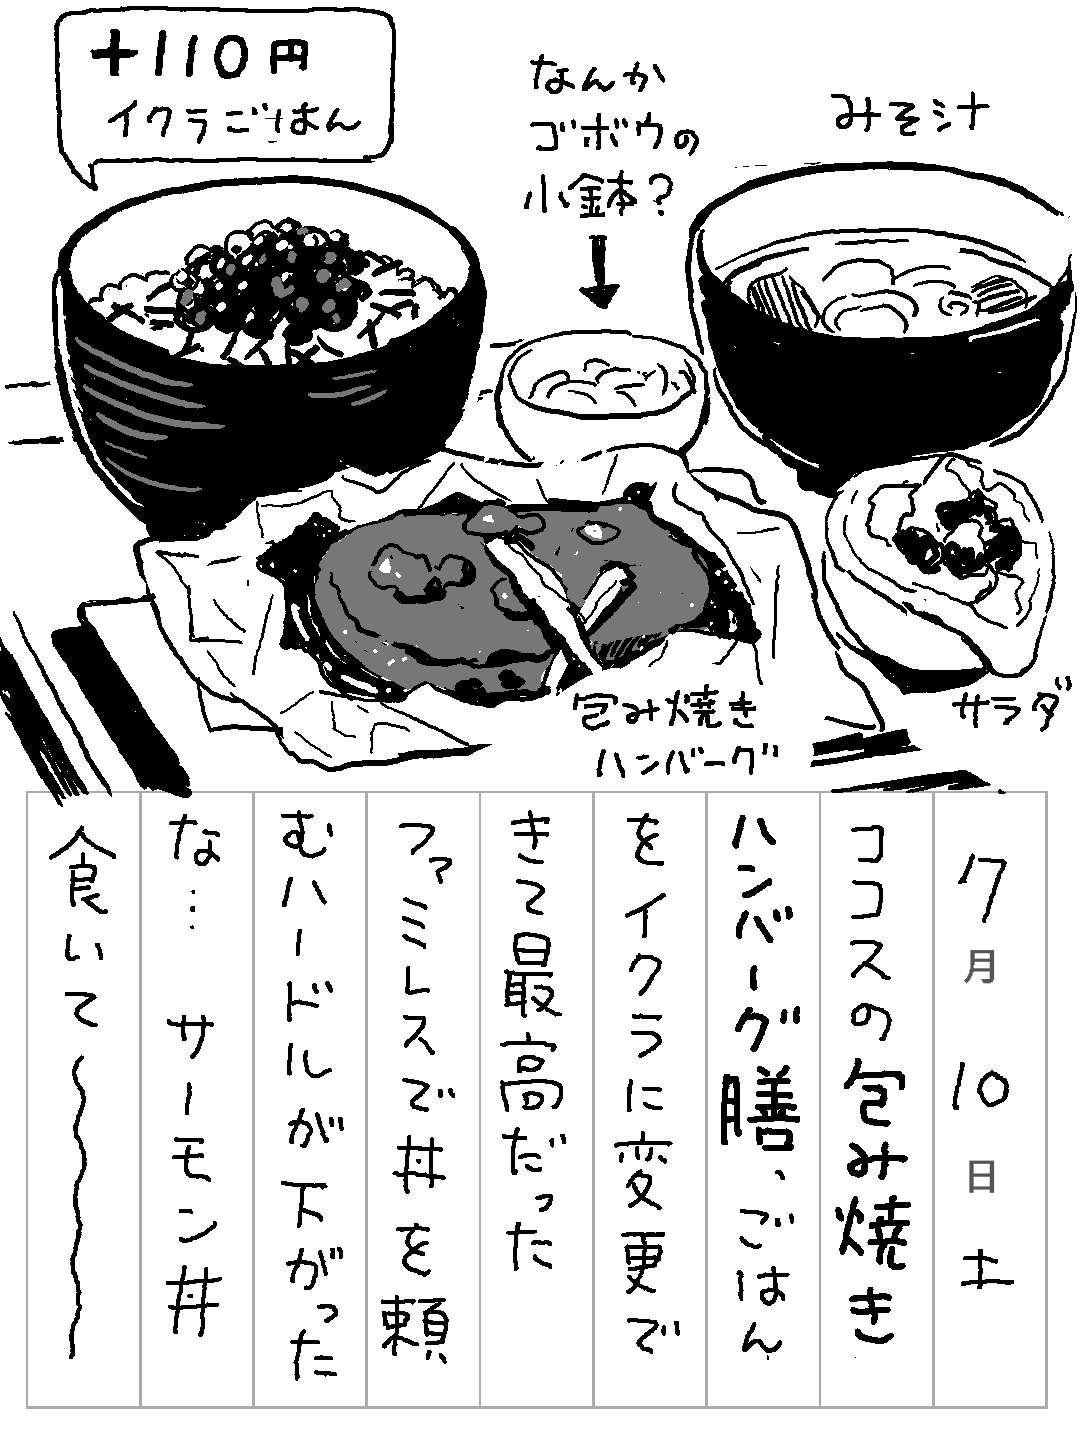 +110円
イクラごはん
なんか
ゴボウの
小鉢?
みそ汁
包み焼き
ハンバーグ
サラダ
7月 10日 土
ココスの包み焼き
ハンバーグ膳、ごはん
をイクラに変更で
きて最高だった
ファミレスで丼を頼
むハードルが下がった
な… サーモン丼
食いて〜